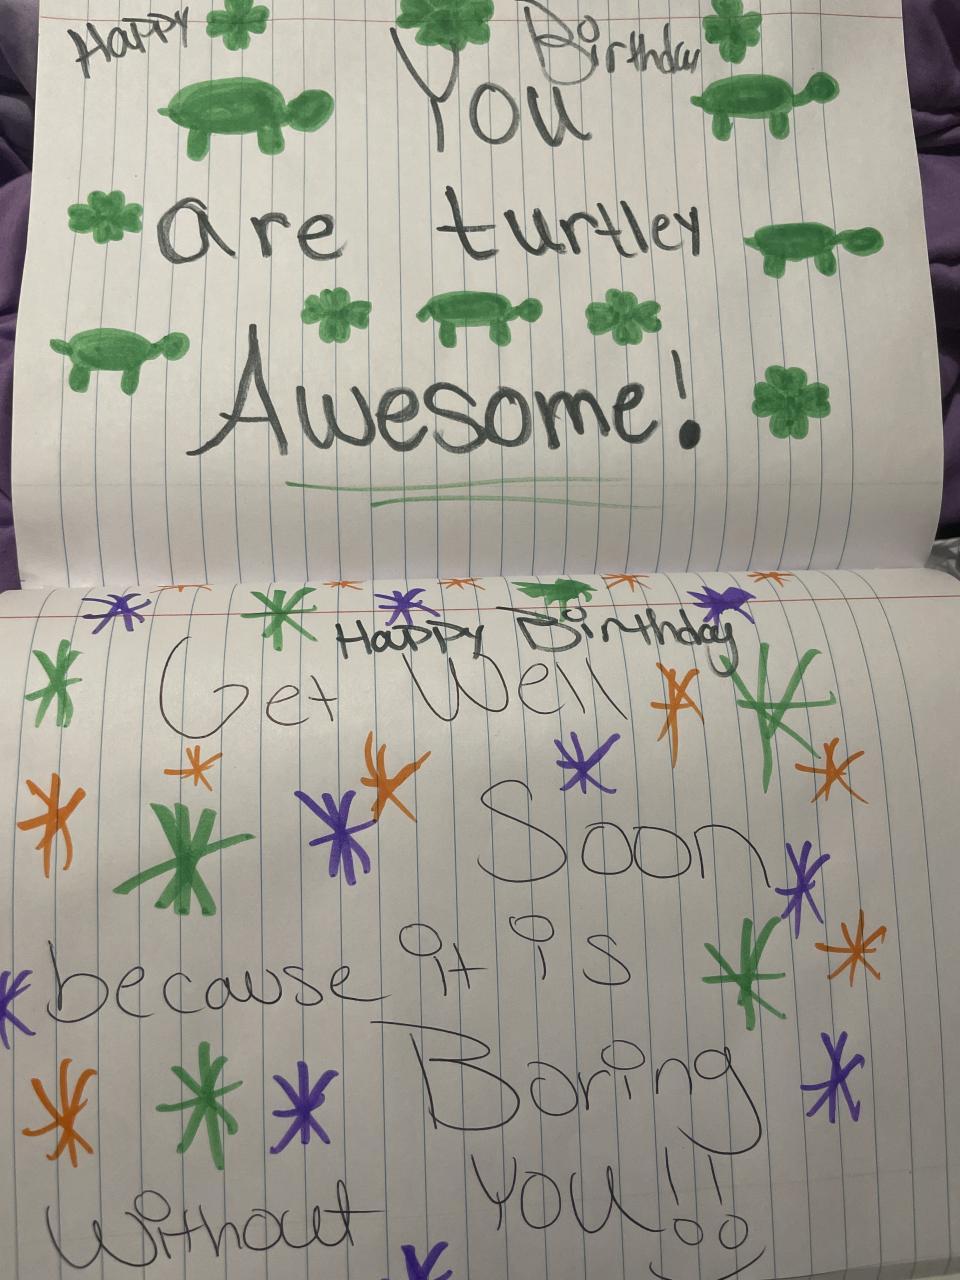 Happy Birthday
You
are turtley
Awesome!
Happy Birthday
Get Well
Soon
because it is
Boring
without YOU!!